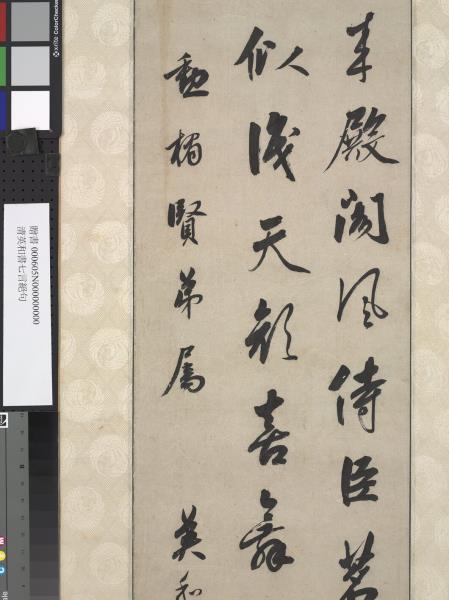 来殿閣風侍臣
似識天顏喜舞
勳楣賢弟屬 英和
贈書 000605N000000000
清英和書七言絕句
x-rite ColorChecker